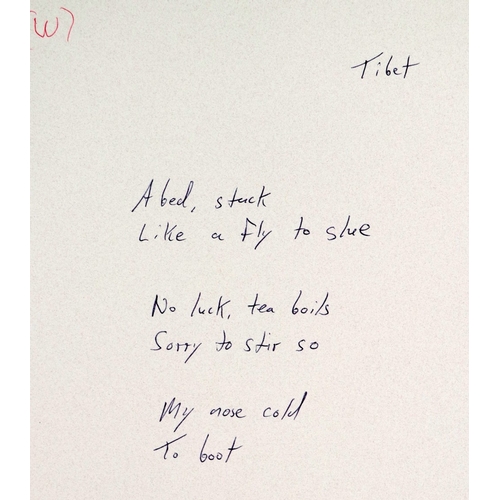 (W)
Tibet
Abed, stuck
Like a fly to slue
No luck, tea boils
Sorry to stir so
My nose cold
To boot